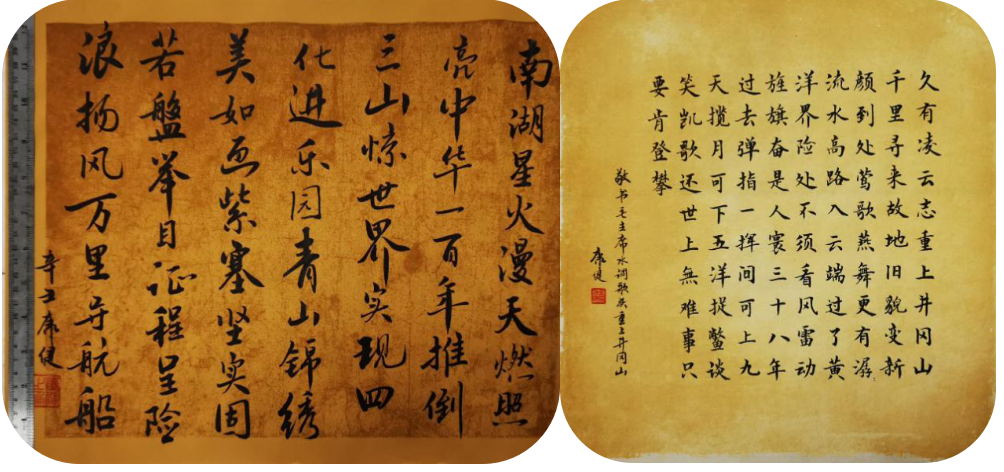 南湖星火漫天燃照
亮中华一百年推倒
三山惊世界实现四
化进乐园青山锦绣
美如画紫塞坚实固
若盤举目征程呈险
浪扬风万里导航船
辛丑康健
久有凌云志重上井冈山
千里寻来故地旧貌变新
颜到处莺歌燕舞更有潺
流水高路入云端过了黄
洋界险处不须看风雷动
旌旗奋是人寰三十八年
过去弹指一挥间可上九
天揽月可下五洋捉鳖谈
笑凯歌还世上無难事只
要肯登攀
敬书毛主席水调歌头重上井冈山
康健